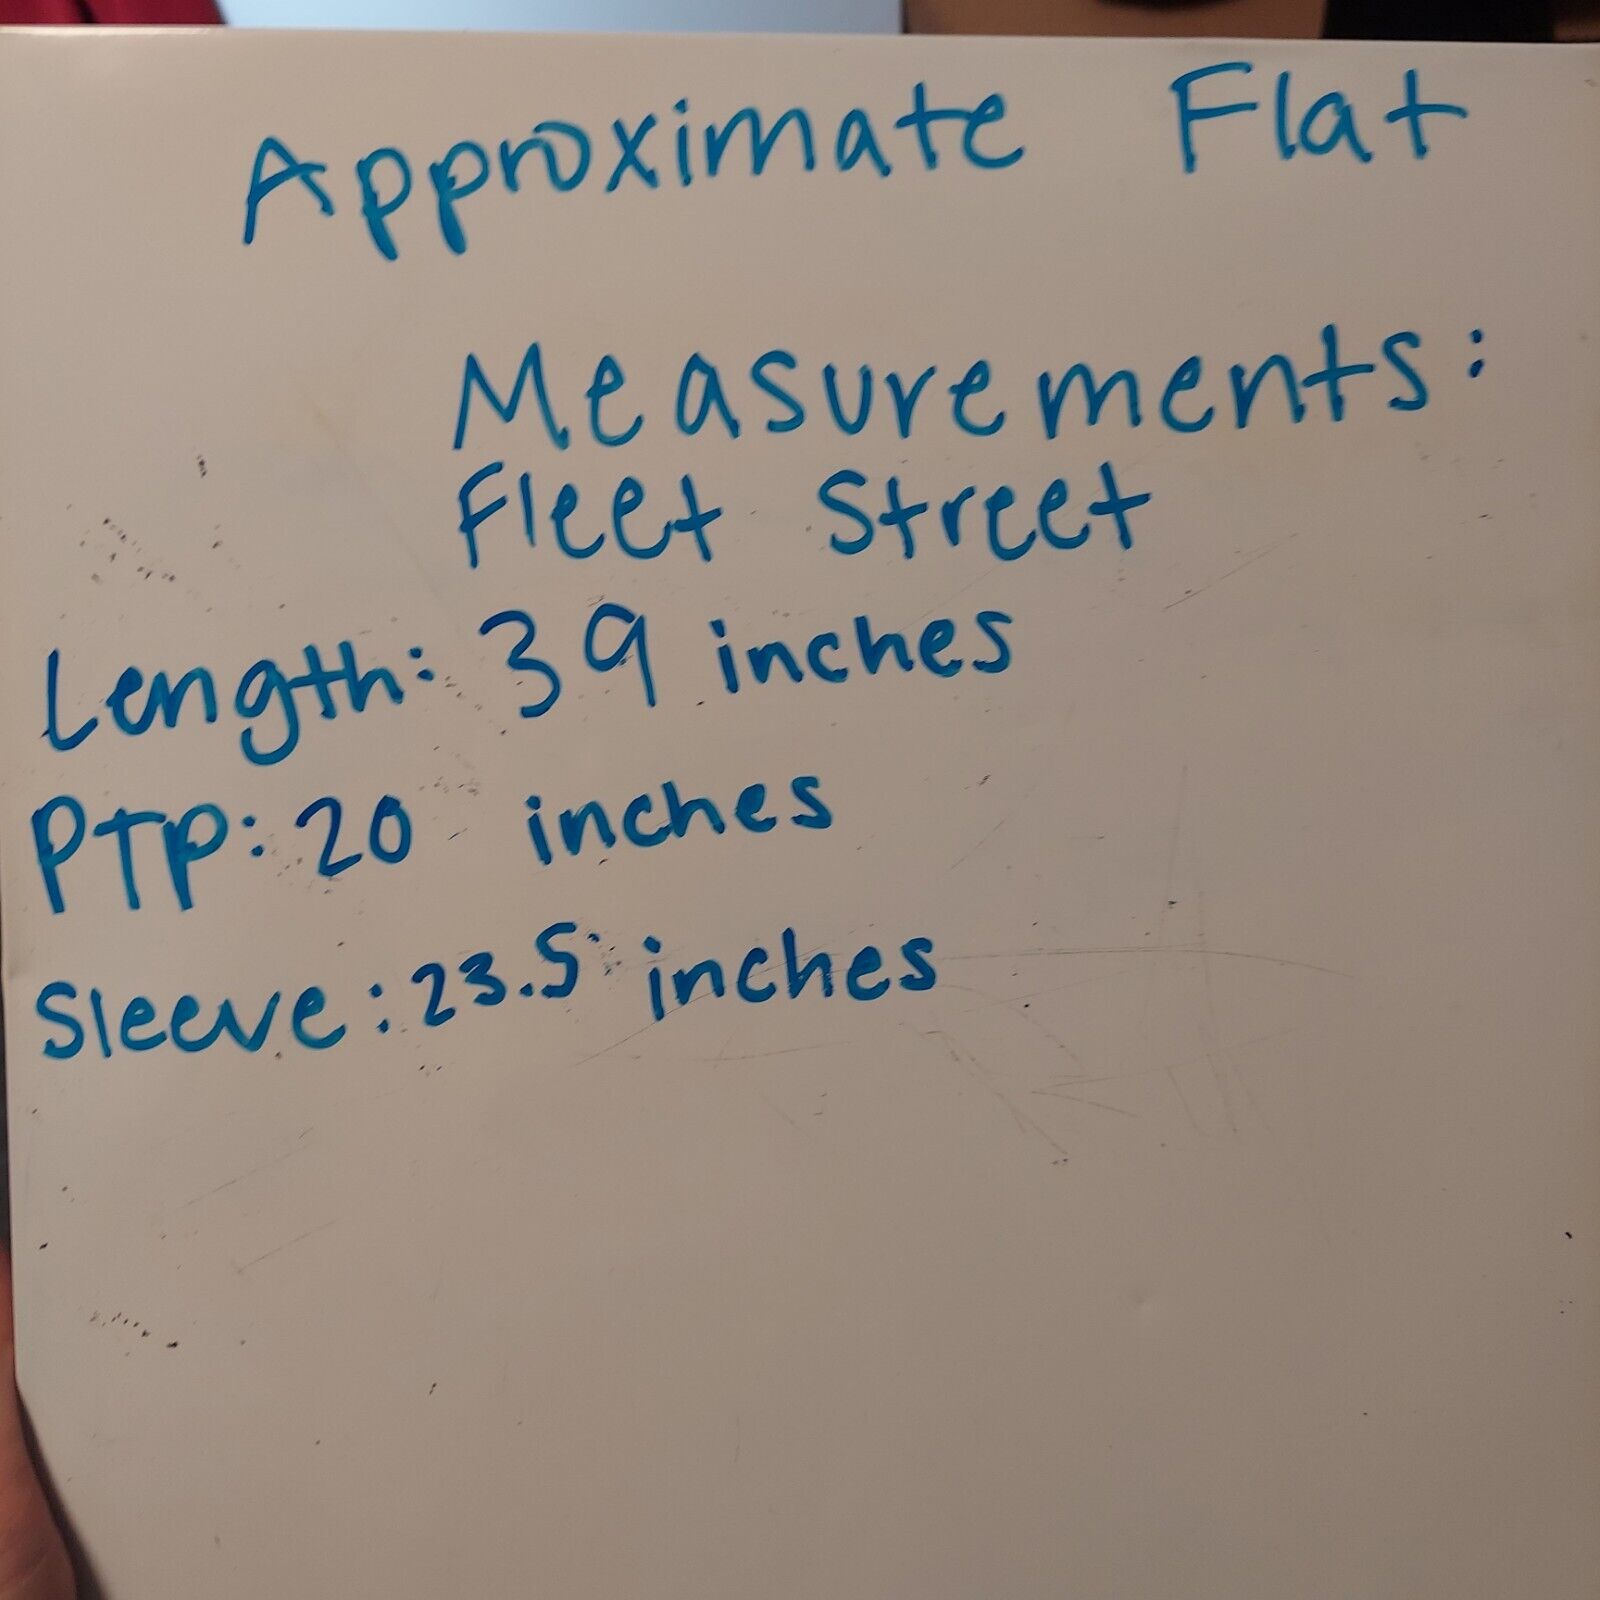 Approximate Flat
Measurements:
Fleet Street
Length: 39 inches
PTP: 20 inches
Sleeve: 23.5 inches